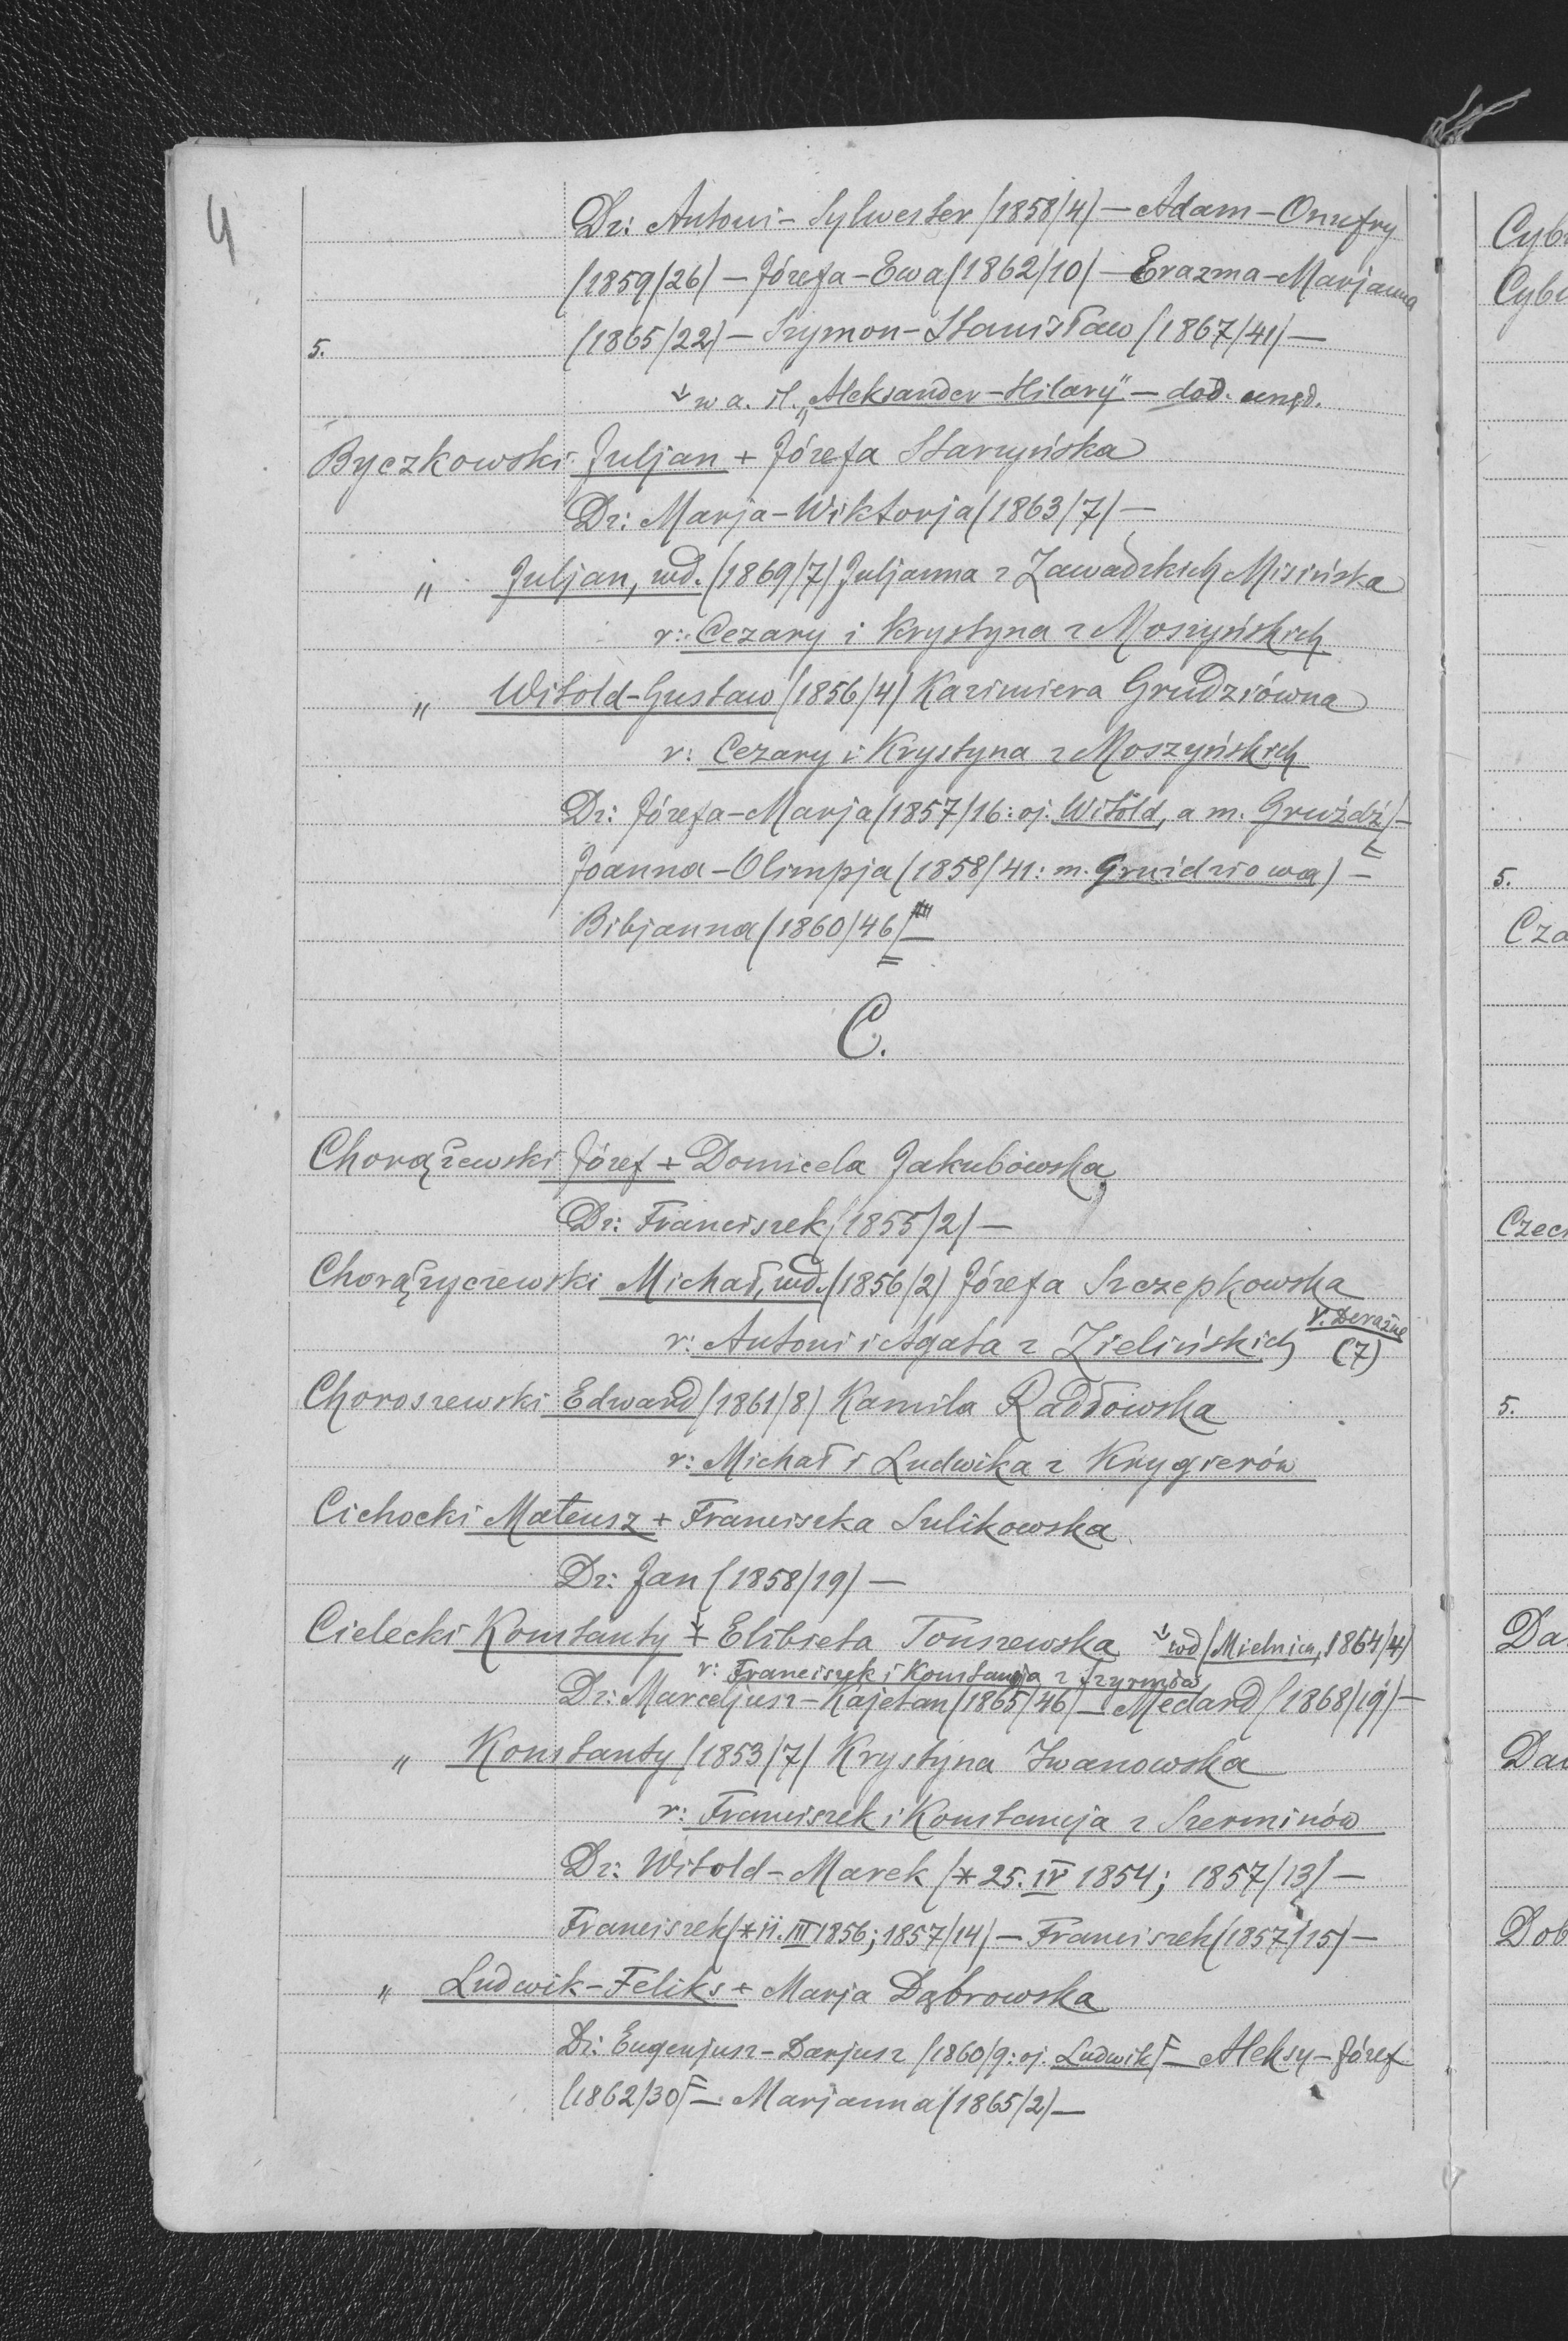 4
Dz: Antoni-Sylwester (1858/4) — Adam-Onufry
(1859/26) — Józefa-Ewa (1862/10) — Erazma-Marjanna
5. (1865/22) — Szymon-Stanisław (1867/41) —
w a. śl. „Aleksander-Hilary" — dod. urzęd.
Byczkowski Juljan + Józefa Starzyńska
Dz: Marja-Wiktorja (1863/7) —
„ Juljan, wd. (1869/7) Juljanna z Zawadzkich Misińska
r: Cezary i Krystyna z Moszyńskich
„ Witold-Gustaw (1856/4) Kazimiera Grudziówna
r: Cezary i Krystyna z Moszyńskich
Dz: Józefa-Marja (1857/16: oj. Witold, a m. Gruźdź) —
Joanna-Olimpja (1858/41: m. Gruidziowa) —
Bibjanna (1860/46) —
C.
Chorążewski Józef + Domicela Jakubowska
Dz: Franciszek (1855/2) —
Chorążyczewski Michał, wd. (1856/2) Józefa Szczepkowska
r: Antoni i Agata z Zielińskich v. Deraźne (7)
Choroszewski Edward (1861/8) Kamila Radłowska
r: Michał i Ludwika z Krygierów
Cichocki Mateusz + Franciszka Sulikowska
Dz: Jan (1858/19) —
Cielecki Konstanty + Elżbieta Touszewska wd (Mielnica, 1864/4)
r: Franciszek i Konstancja z Szyrmów
Dz: Marceljusz-Kajetan (1865/46) — Medard (1868/19) —
„ Konstanty (1853/7) Krystyna Iwanowska
r: Franciszek i Konstancja z Szerminów
Dz: Witold-Marek (* 25. IV 1854; 1857/13) —
Franciszek (* 11. III 1856; 1857/14) — Franciszek (1857/15) —
„ Ludwik-Feliks + Marja Dąbrowska
Dz: Eugenjusz-Darjusz (1860/9: oj. Ludwik) — Aleksy-Józef
(1862/30) — Marjanna (1865/2) —
Cyb
Cyb
5.
Cza
Czec
5.
Da
Da
Dob